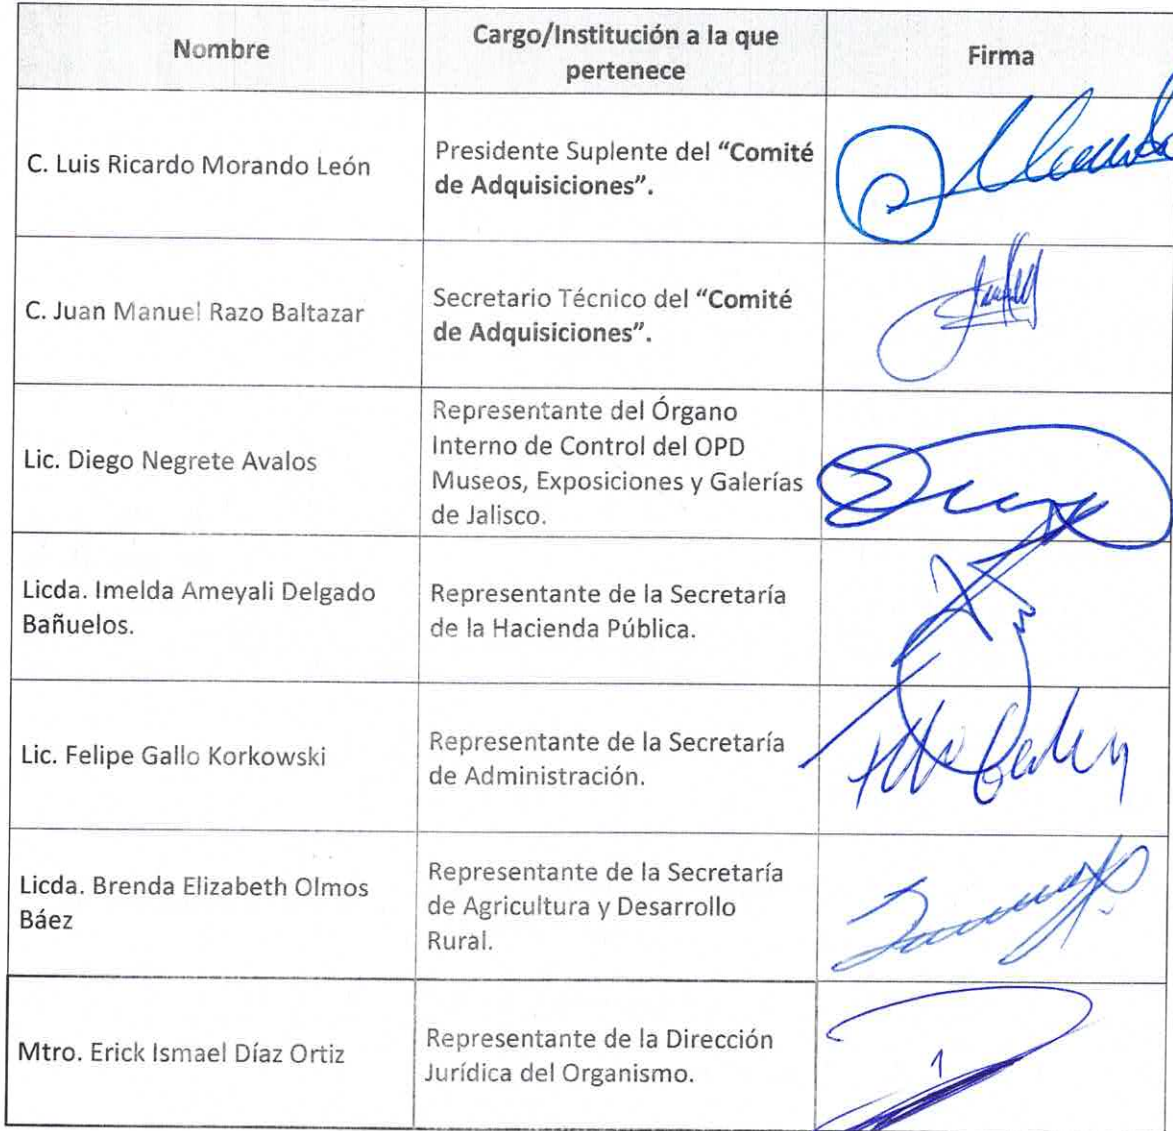 Nombre
Cargo/Institución a la que
pertenece
Firma
C. Luis Ricardo Morando León
Presidente Suplente del "Comité
de Adquisiciones".
C. Juan Manuel Razo Baltazar
Secretario Técnico del "Comité
de Adquisiciones".
Lic. Diego Negrete Avalos
Representante del Órgano
Interno de Control del OPD
Museos, Exposiciones y Galerías
de Jalisco.
Licda. Imelda Ameyali Delgado
Bañuelos.
Representante de la Secretaría
de la Hacienda Pública.
Lic. Felipe Gallo Korkowski
Representante de la Secretaría
de Administración.
Licda. Brenda Elizabeth Olmos
Báez
Representante de la Secretaría
de Agricultura y Desarrollo
Rural.
Mtro. Erick Ismael Díaz Ortiz
Representante de la Dirección
Jurídica del Organismo.